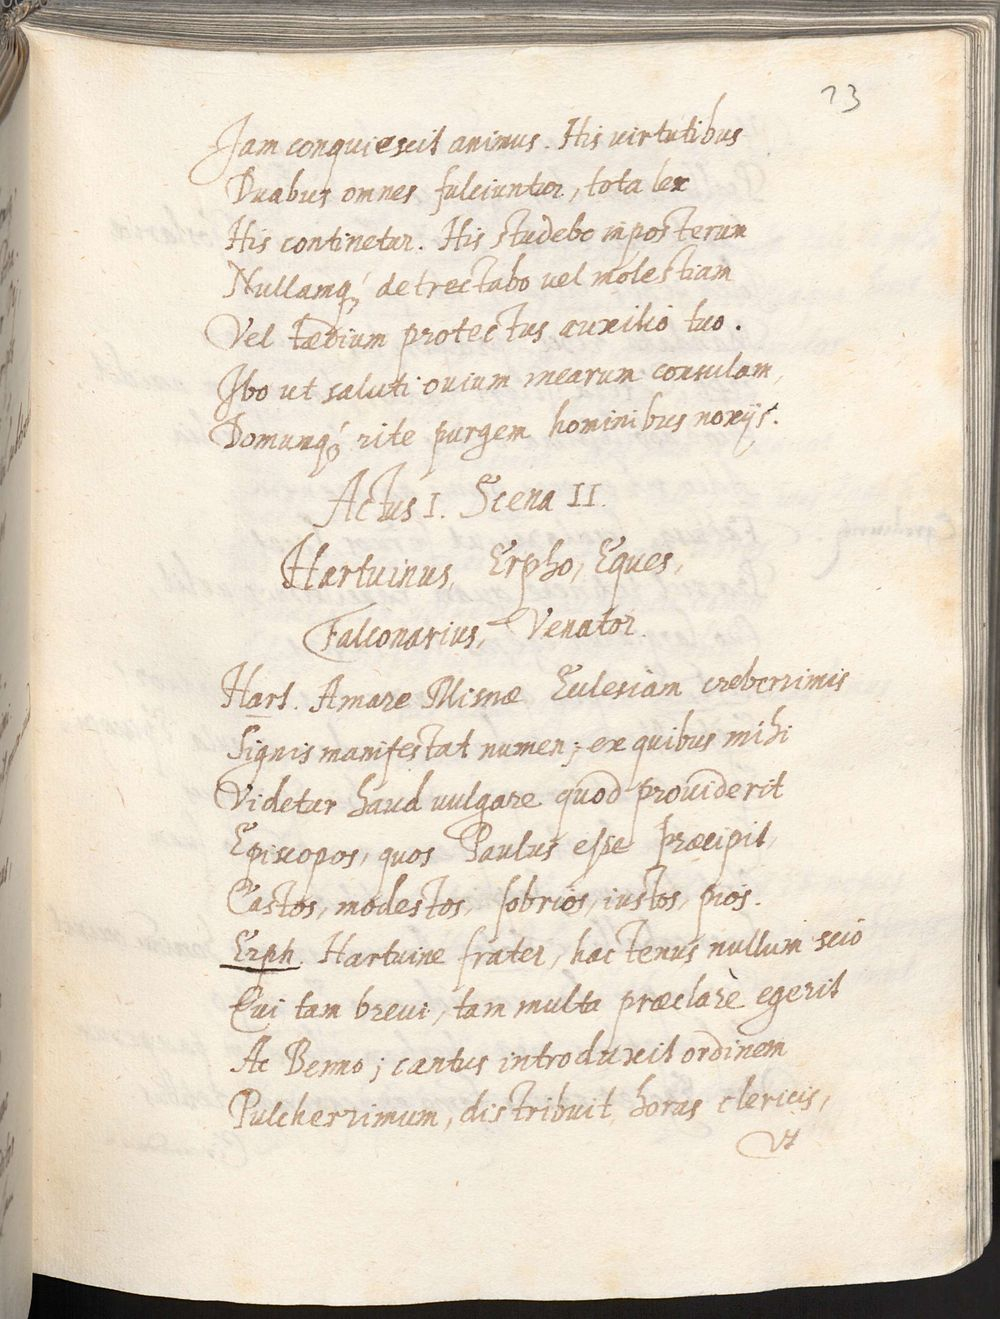 23
Jam conquiescit animus. His virtutibus
Duabus omnes fulciuntur, tota lex
His continetur. His studebo inposterum
Nullamq́; detrectabo vel molestiam
Vel tædium protectus auxilio tuo.
Ibo ut saluti ouium mearum consulam,
Domumq́; rite purgem hominibus noxijs.
Actus I. Scena II.
Hartuinus, Erpho, Eques,
Falconarius, Venator.
Hart. Amare Misnæ Ecclesiam creberrimis
Signis manifestat numen; ex quibus mihi
Videtur haud uulgare quod prouiderit
Episcopos, quos Paulus esse præcipit,
Castos, modestos, sobrios, iustos, pios.
Erph. Hartuine frater, hactenus nullum scio
Qui tam breui, tam multa præclarè egerit
Ac Benno; cantus introduxit ordinem
Pulcherrimum, distribuit horas clericis,
Vt